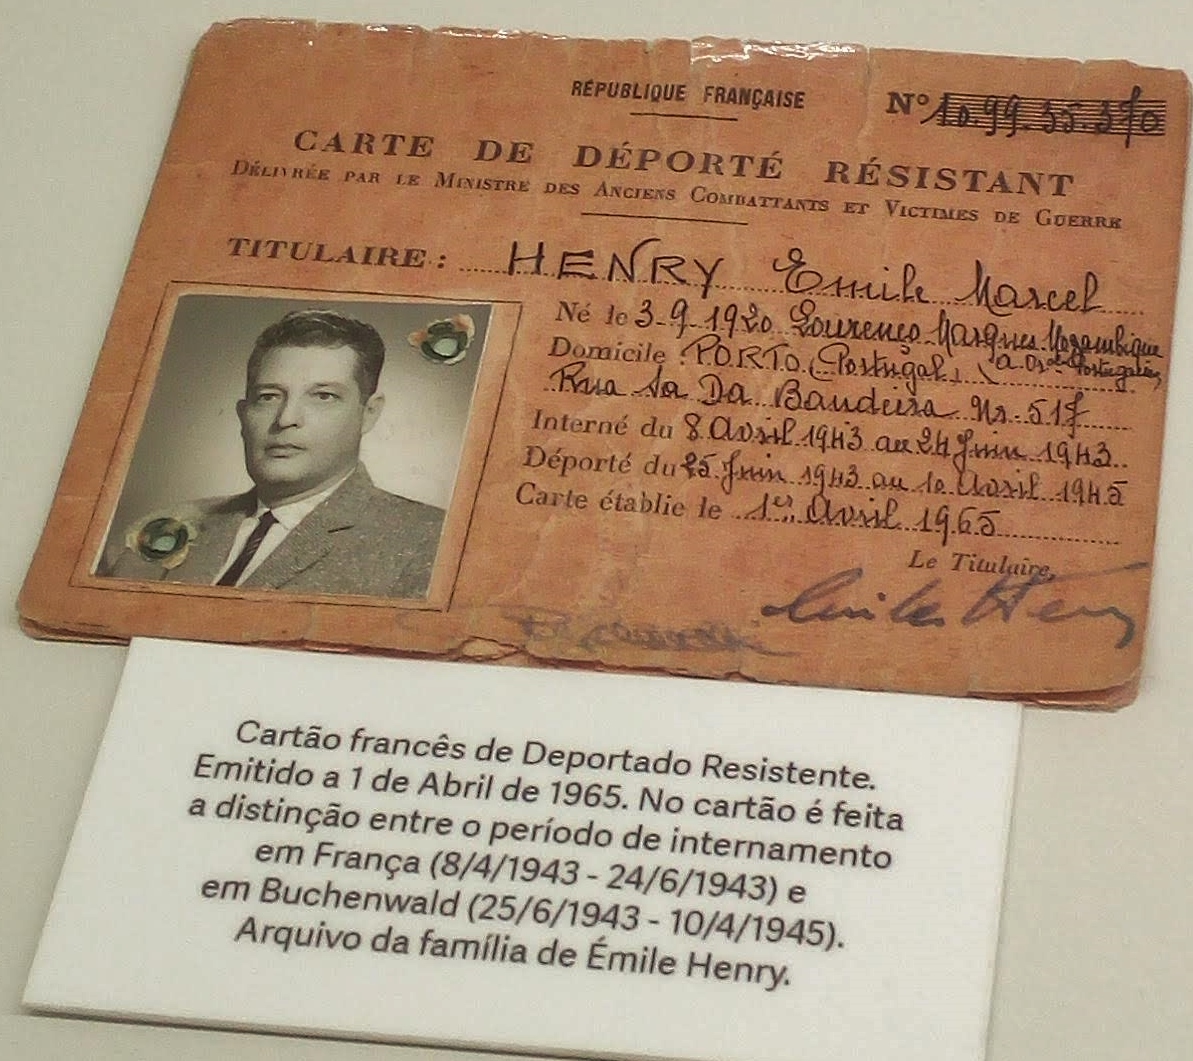 RÉPUBLIQUE FRANÇAISE
N° 10.99.35.370
CARTE DE DÉPORTÉ RÉSISTANT
DÉLIVRÉE PAR LE MINISTRE DES ANCIENS COMBATTANTS ET VICTIMES DE GUERRE
TITULAIRE : HENRY Emile Marcel
Né le 3-9-1920 Lourenço Marques Mozambique
Domicile : PORTO (Portugal)
Rua Sa Da Bandeira Nr. 517
Interné du 8 Avril 1943 au 24 Juin 1943
Déporté du 25 Juin 1943 au 10 Avril 1945
Carte établie le 1er Avril 1965
Le Titulaire,
Emile Henry
Cartão francês de Deportado Resistente.
Emitido a 1 de Abril de 1965. No cartão é feita
a distinção entre o período de internamento
em França (8/4/1943 - 24/6/1943) e
em Buchenwald (25/6/1943 - 10/4/1945).
Arquivo da família de Émile Henry.